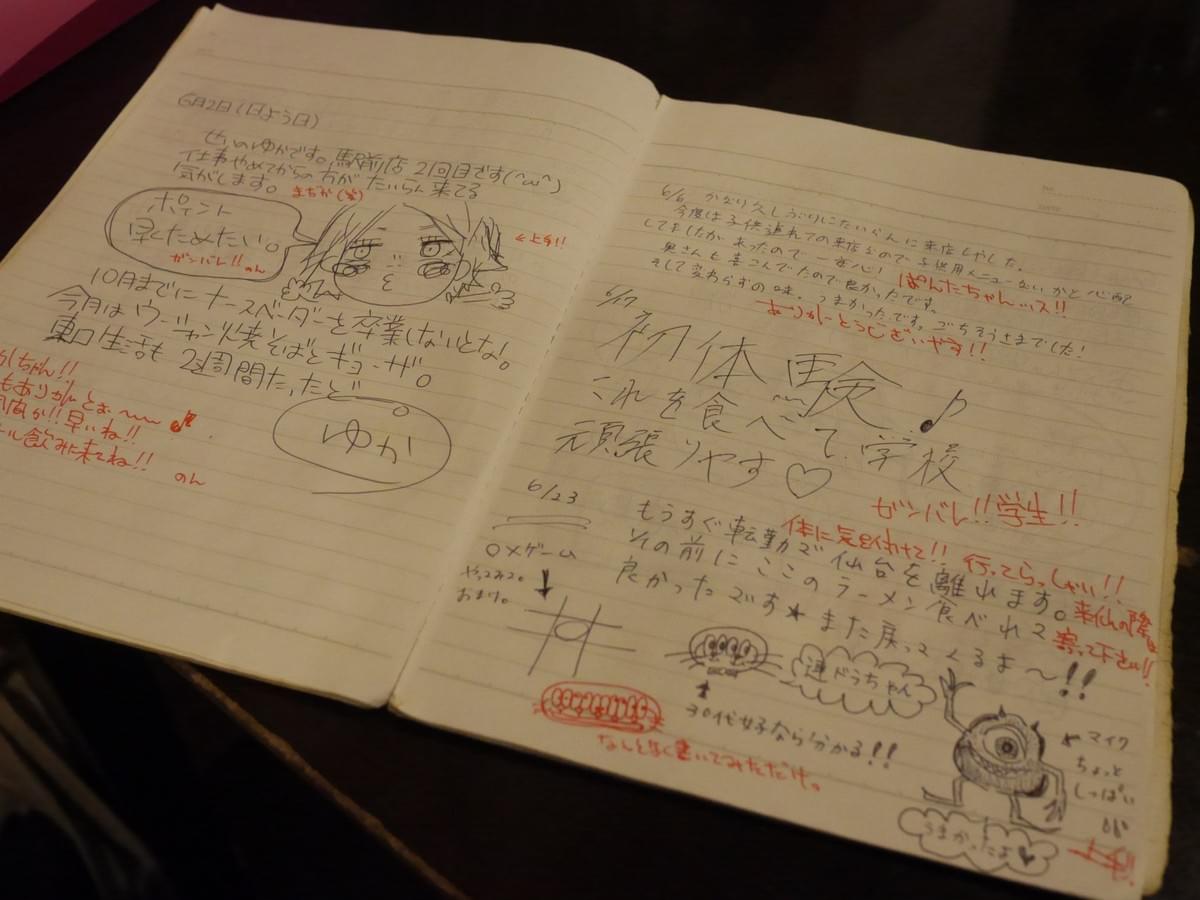 6月2日(日よう日)
せいのゆかです。駅前店2回目です(^ω^)
仕事やめてからの方がたいらん来てる
気がします。
ポイント
早くためたい。
ガンバレ!!のん
←上手!!
10月までにナースベーダーを卒業しないとな!。
今月はウージャン火尭そばとギョーザ。
東口生活も2週間たったどー。
ゆか
ちゃん!!
もありがとぉ〜〜♪
早いね!!
飲みに来てね!!
のん
6/6 かなり久しぶりにたいらんに来店しやした。
今度は子供連れての来店なので子供用メニューないかと心配
してましたがあったので一安心!
ぽんたちゃんッス!!
奥さんも喜こんでたので良かったです。
そして変わらずの味。うまかったです。ごちそうさまでした!
ありがーとうございやす!!
6/17
初体験♪
これを食べて学校
頑張りやす♡
ガンバレ!!学生!!
6/23
もうすぐ転勤で仙台を離れます。
体に気を付けて!! 行ってらっしゃい!!
その前にここのラーメン食べれて
来仙の際は
寄って下さい!!
良かったです★また戻ってくるま〜!!
○×ゲーム
やってみて。
おまけ。
連ドラちゃん
30代女子なら分かる!!
なんとなく書いてみただけ。
←マイク
ちょっと
しっぱい
うまかったよ♥